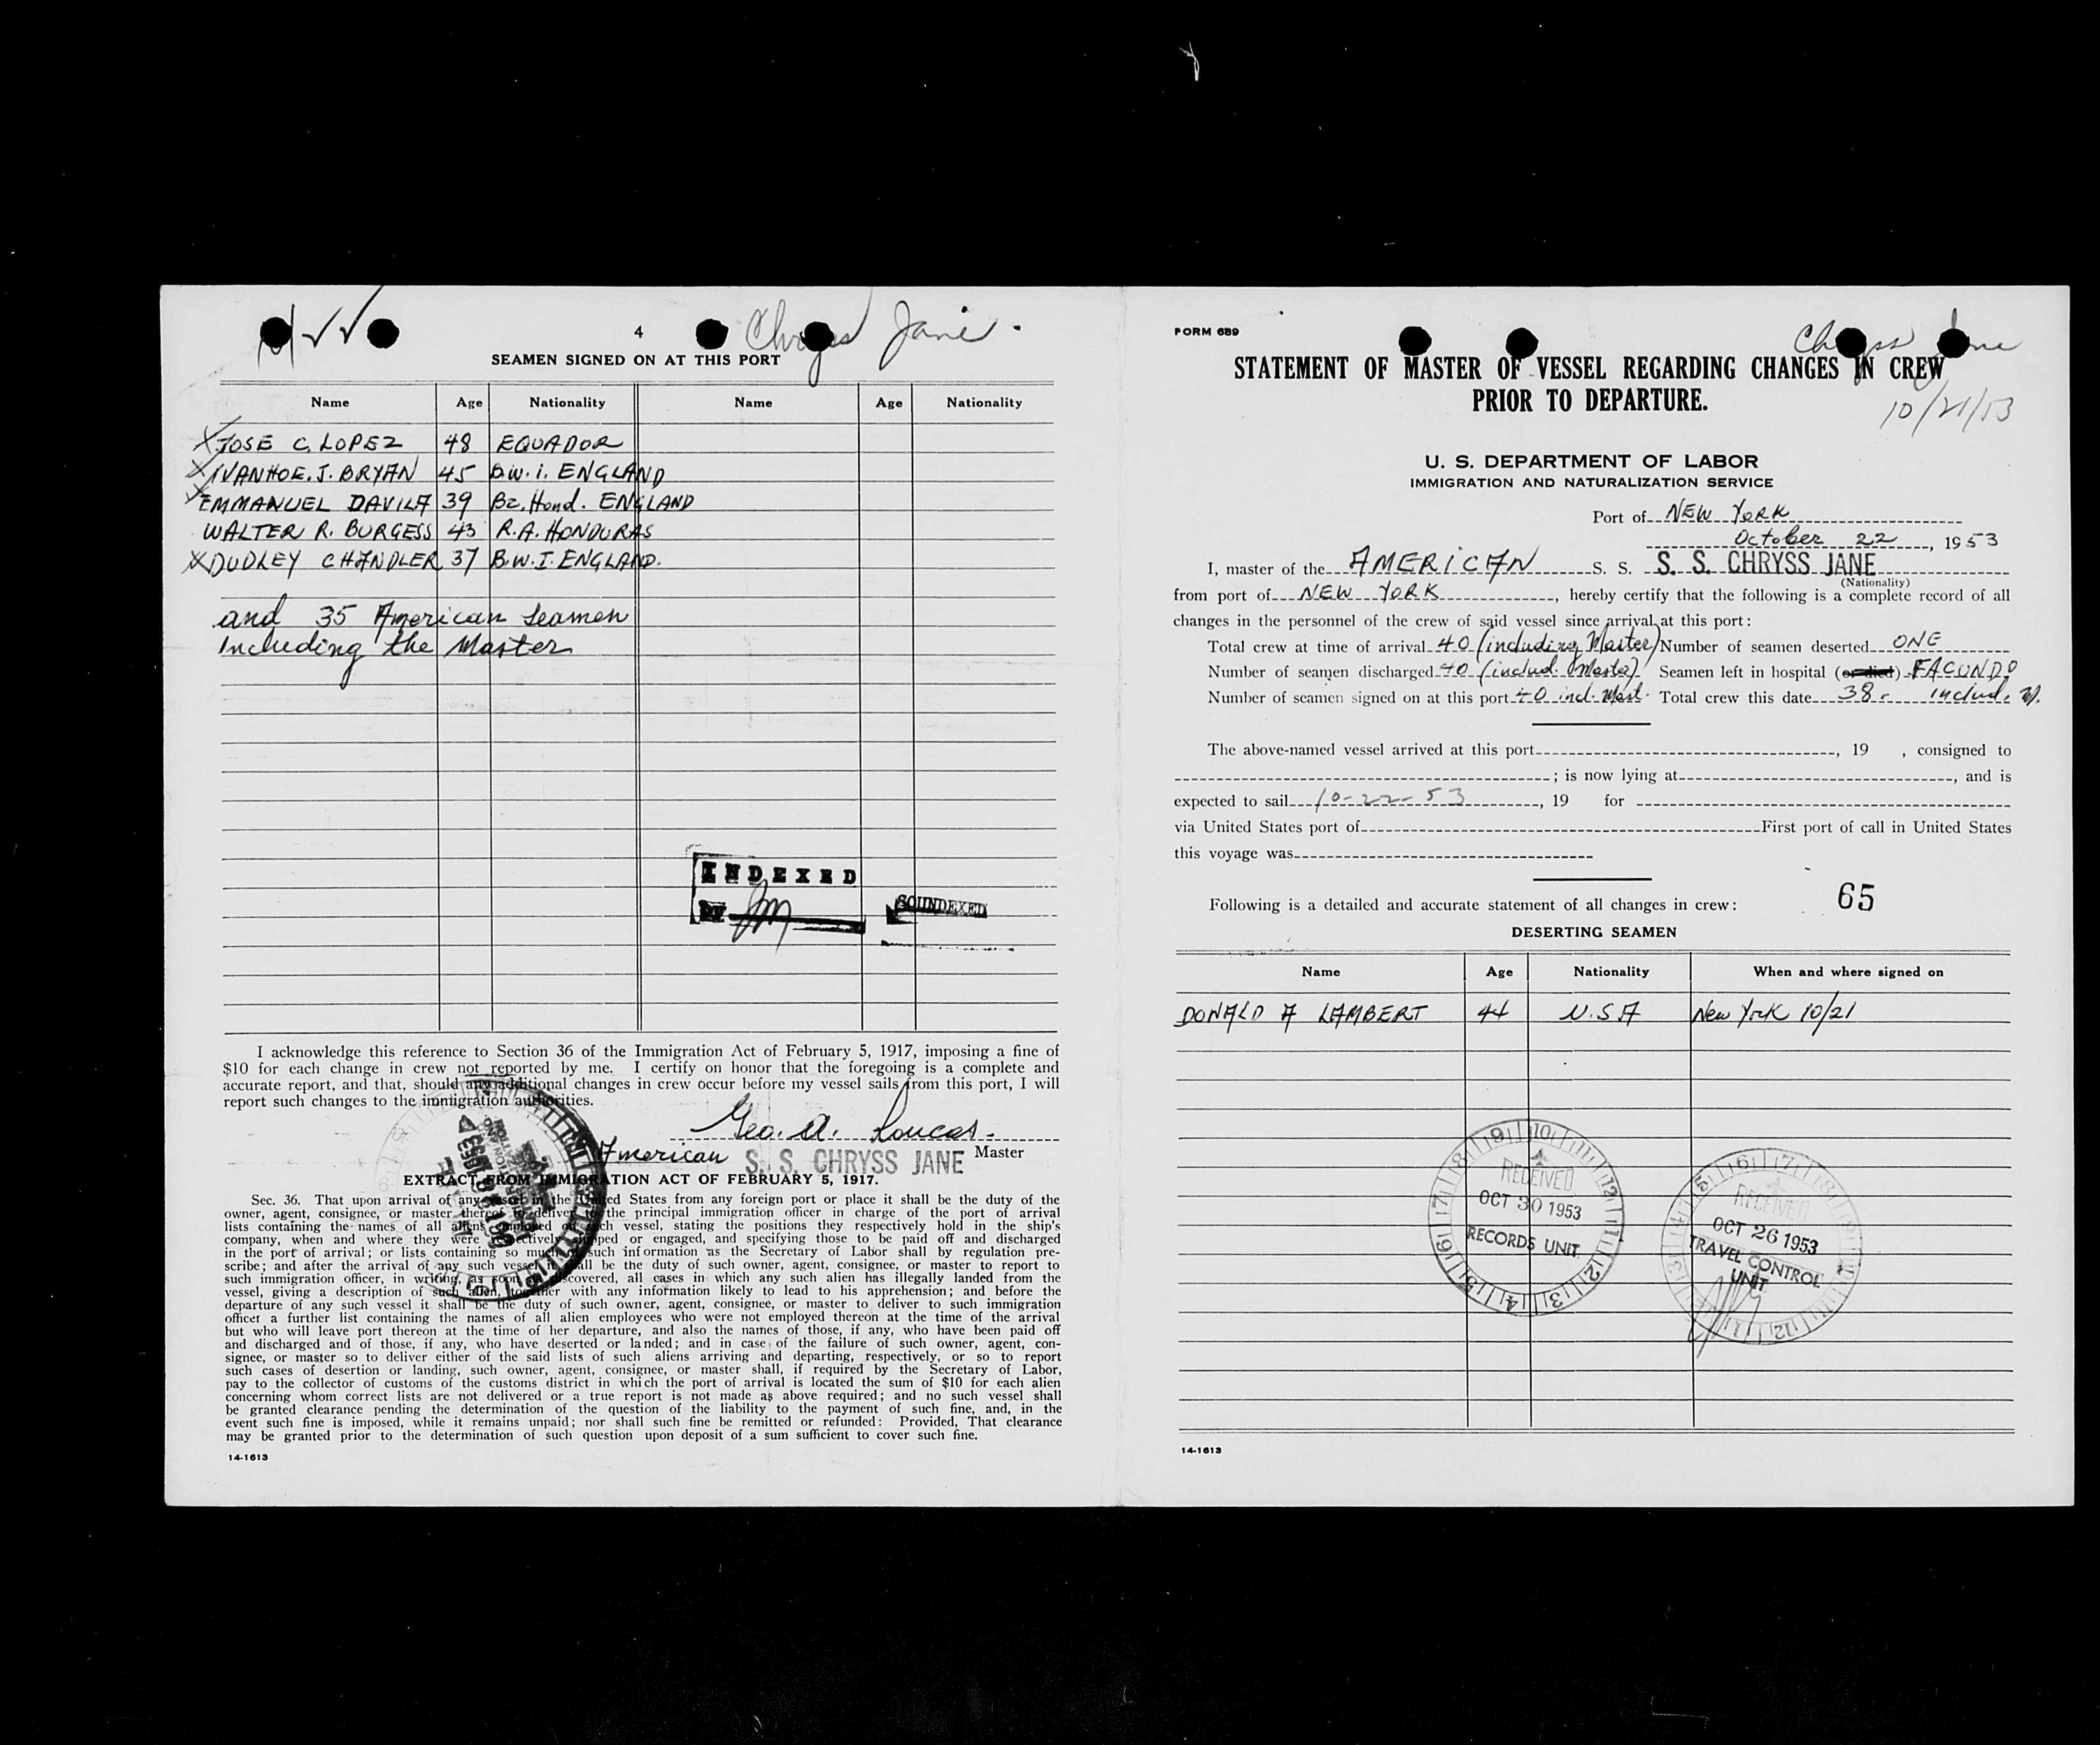 4
Chryss Jane.
SEAMEN SIGNED ON AT THIS PORT
Name Age Nationality Name Age Nationality
JOSE C. LOPEZ 48 EQUADOR
IVANHOE. J. BRYAN 45 B.W.I. ENGLAND
EMMANUEL DAVILA 39 Bz. Hond. ENGLAND
WALTER R. BURGESS 43 R.A. HONDURAS
DUDLEY CHANDLER 37 B.W.I. ENGLAND.
and 35 American Seamen
Including the Master
INDEXED
by
SOUNDEXED
I acknowledge this reference to Section 36 of the Immigration Act of February 5, 1917, imposing a fine of
$10 for each change in crew not reported by me. I certify on honor that the foregoing is a complete and
accurate report, and that, should any additional changes in crew occur before my vessel sails from this port, I will
report such changes to the immigration authorities.
Geo. A. Loucas.
American S. S. CHRYSS JANE Master
EXTRACT FROM IMMIGRATION ACT OF FEBRUARY 5, 1917.
Sec. 36. That upon arrival of any vessel in the United States from any foreign port or place it shall be the duty of the
owner, agent, consignee, or master thereof to deliver to the principal immigration officer in charge of the port of arrival
lists containing the names of all aliens employed on such vessel, stating the positions they respectively hold in the ship's
company, when and where they were respectively shipped or engaged, and specifying those to be paid off and discharged
in the port of arrival; or lists containing so much of such information as the Secretary of Labor shall by regulation pre-
scribe; and after the arrival of any such vessel it shall be the duty of such owner, agent, consignee, or master to report to
such immigration officer, in writing, as soon as discovered, all cases in which any such alien has illegally landed from the
vessel, giving a description of such alien, together with any information likely to lead to his apprehension; and before the
departure of any such vessel it shall be the duty of such owner, agent, consignee, or master to deliver to such immigration
officer a further list containing the names of all alien employees who were not employed thereon at the time of the arrival
but who will leave port thereon at the time of her departure, and also the names of those, if any, who have been paid off
and discharged and of those, if any, who have deserted or landed; and in case of the failure of such owner, agent, con-
signee, or master so to deliver either of the said lists of such aliens arriving and departing, respectively, or so to report
such cases of desertion or landing, such owner, agent, consignee, or master shall, if required by the Secretary of Labor,
pay to the collector of customs of the customs district in which the port of arrival is located the sum of $10 for each alien
concerning whom correct lists are not delivered or a true report is not made as above required; and no such vessel shall
be granted clearance pending the determination of the question of the liability to the payment of such fine, and, in the
event such fine is imposed, while it remains unpaid; nor shall such fine be remitted or refunded: Provided, That clearance
may be granted prior to the determination of such question upon deposit of a sum sufficient to cover such fine.
14-1613
FORM 689
Chryss Jane
STATEMENT OF MASTER OF VESSEL REGARDING CHANGES IN CREW
PRIOR TO DEPARTURE.
10/21/53
U. S. DEPARTMENT OF LABOR
IMMIGRATION AND NATURALIZATION SERVICE
Port of NEW YORK
October 22, 1953
I, master of the AMERICAN S. S. S. S. CHRYSS JANE
(Nationality)
from port of NEW YORK, hereby certify that the following is a complete record of all
changes in the personnel of the crew of said vessel since arrival at this port:
Total crew at time of arrival 40 (including Master) Number of seamen deserted ONE
Number of seamen discharged 40 (includ. Master) Seamen left in hospital (or died) FACUNDO
Number of seamen signed on at this port 40 incl. Mast. Total crew this date 38. includ. M.
The above-named vessel arrived at this port, 19 , consigned to
; is now lying at, and is
expected to sail 10-22-53, 19 for
via United States port of First port of call in United States
this voyage was
65
Following is a detailed and accurate statement of all changes in crew:
DESERTING SEAMEN
Name Age Nationality When and where signed on
DONALD A LAMBERT 44 U.S.A New York 10/21
RECEIVED
OCT 30 1953
RECORDS UNIT
RECEIVED
OCT 26 1953
TRAVEL CONTROL
UNIT
14-1613